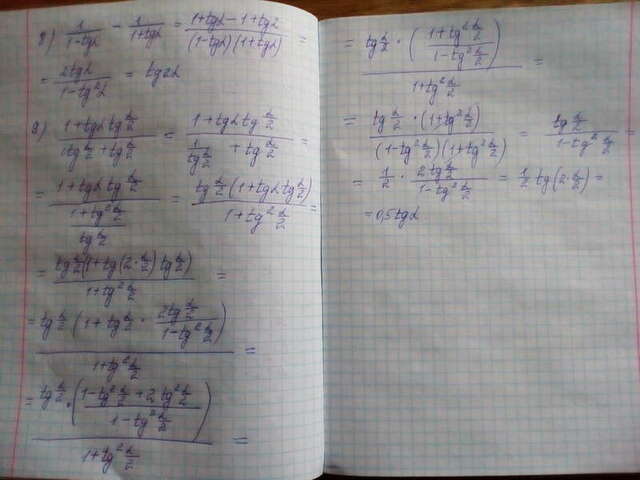 8) 1/(1-tgα) - 1/(1+tgα) = (1+tgα-1+tgα)/((1-tgα)(1+tgα)) =
= 2tgα/(1-tg²α) = tg2α
9) (1+tgα tg α/2)/(ctg α/2 + tg α/2) = (1+tgα tg α/2)/(1/(tg α/2) + tg α/2) =
= (1+tgα tg α/2)/((1+tg² α/2)/(tg α/2)) = (tg α/2 (1+tgα tg α/2))/(1+tg² α/2) =
= (tg α/2 (1+tg(2·α/2) tg α/2))/(1+tg² α/2) =
= (tg α/2 (1+tg α/2 · (2tg α/2)/(1-tg² α/2)))/(1+tg² α/2) =
= (tg α/2 · ((1-tg² α/2 + 2tg² α/2)/(1-tg² α/2)))/(1+tg² α/2) =
= (tg α/2 · ((1+tg² α/2)/(1-tg² α/2)))/(1+tg² α/2) =
= (tg α/2 · (1+tg² α/2))/((1-tg² α/2)(1+tg² α/2)) = (tg α/2)/(1-tg² α/2) =
= 1/2 · (2tg α/2)/(1-tg² α/2) = 1/2 tg(2·α/2) =
= 0,5tgα